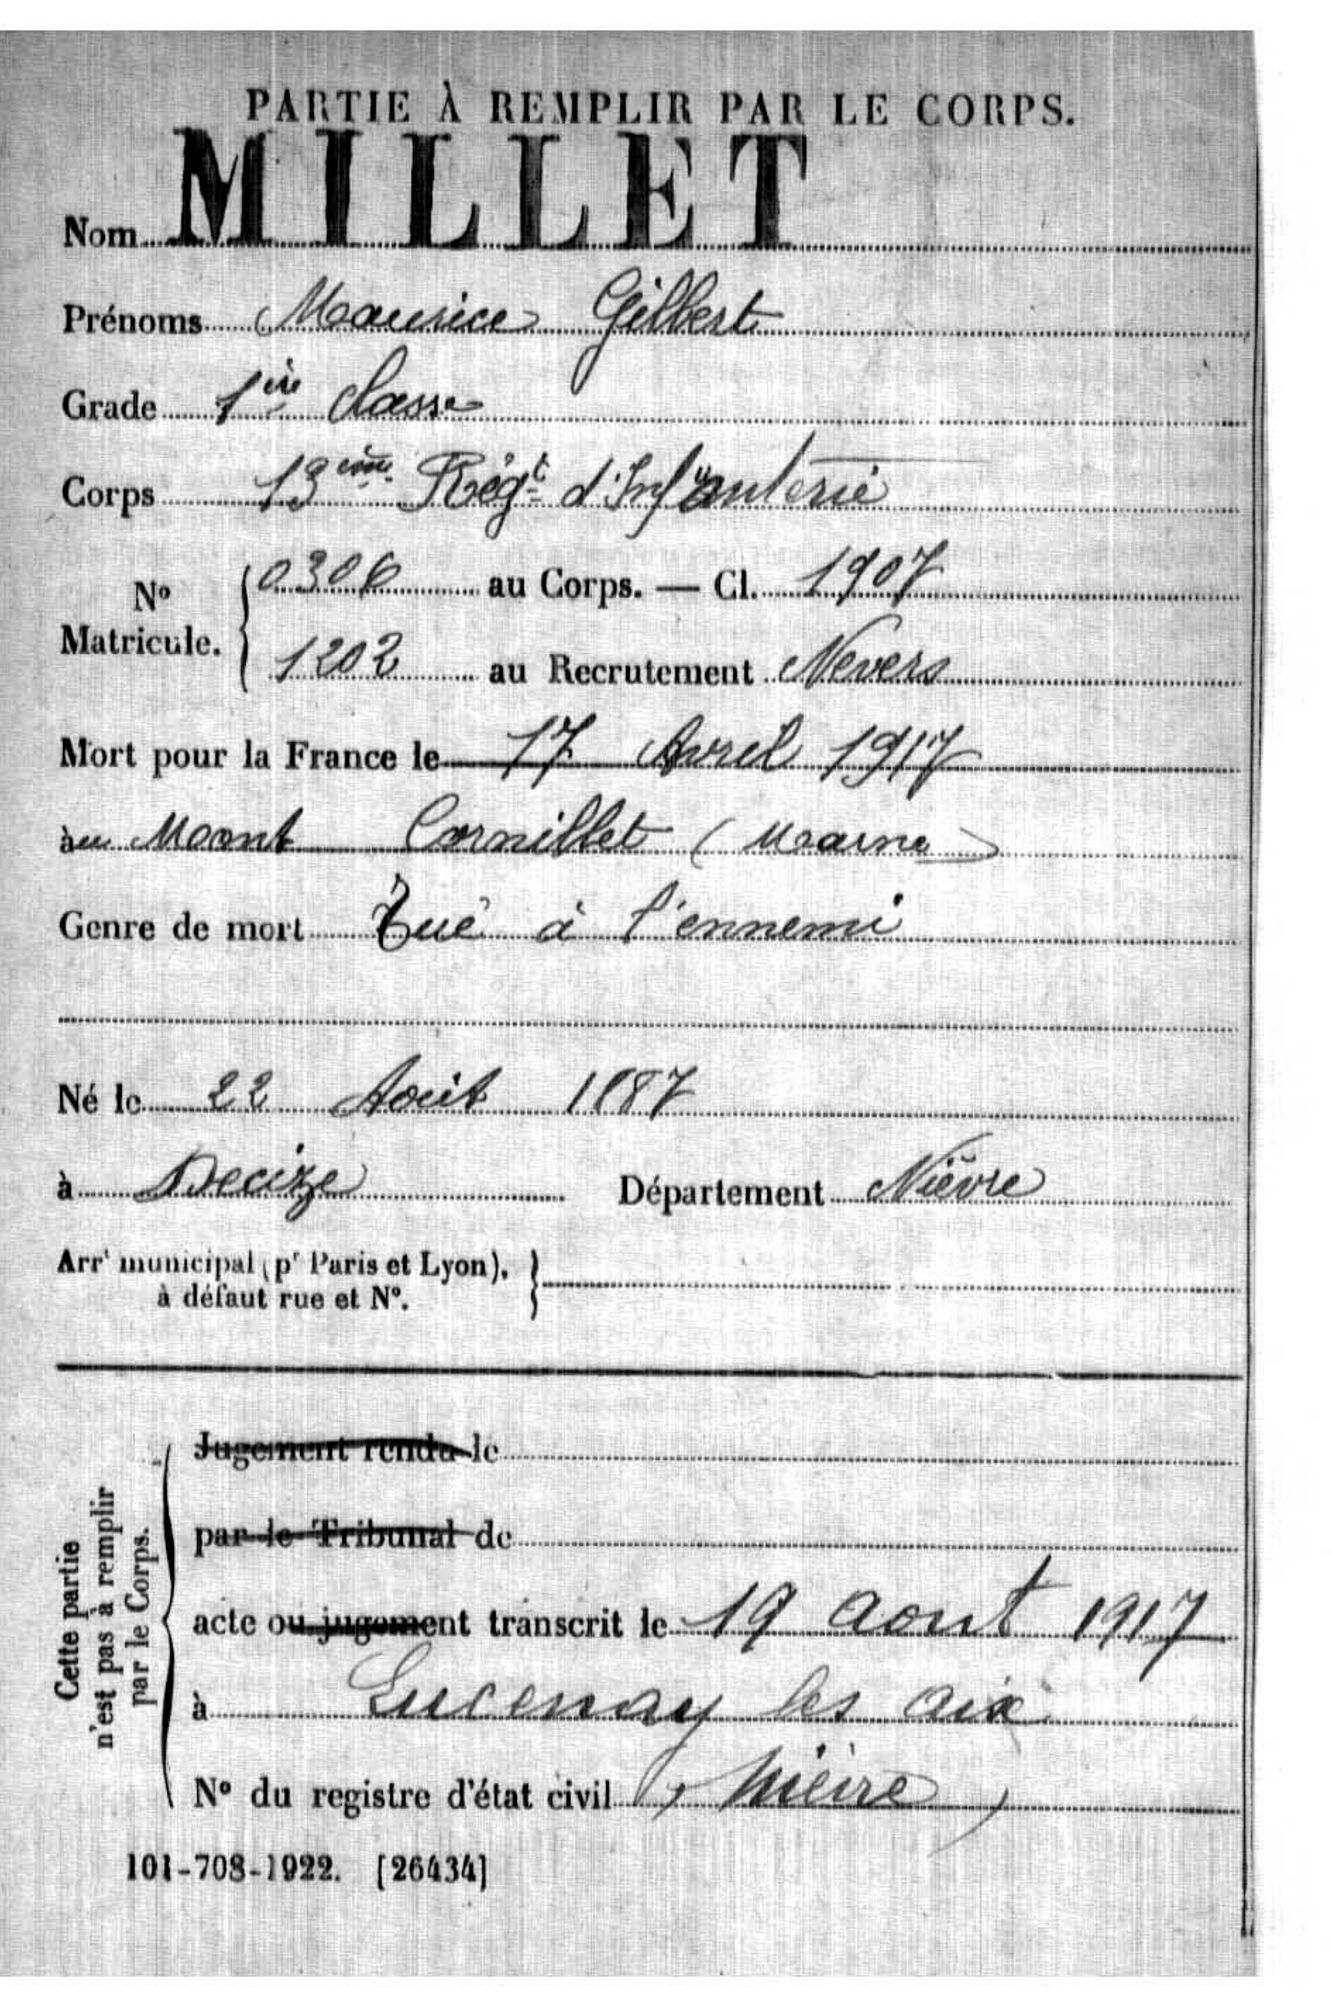 PARTIE À REMPLIR PAR LE CORPS.
Nom MILLET
Prénoms Maurice Gilbert
Grade 1ère classe
Corps 13ème Régt d'Infanterie
No Matricule. 0306 au Corps. — Cl. 1907
1202 au Recrutement Nevers
Mort pour la France le 17 Avril 1917
au Mont Cornillet (Marne)
Genre de mort Tué à l'ennemi
Né le 22 Août 1887
à Decize Département Nièvre
Arrt municipal (pr Paris et Lyon), à défaut rue et No.
Cette partie n'est pas à remplir par le Corps.
Jugement rendu le
par le Tribunal de
acte ou jugement transcrit le 19 aout 1917
à Lucenay les aix
No du registre d'état civil (Nièvre)
101-708-1922. [26434]